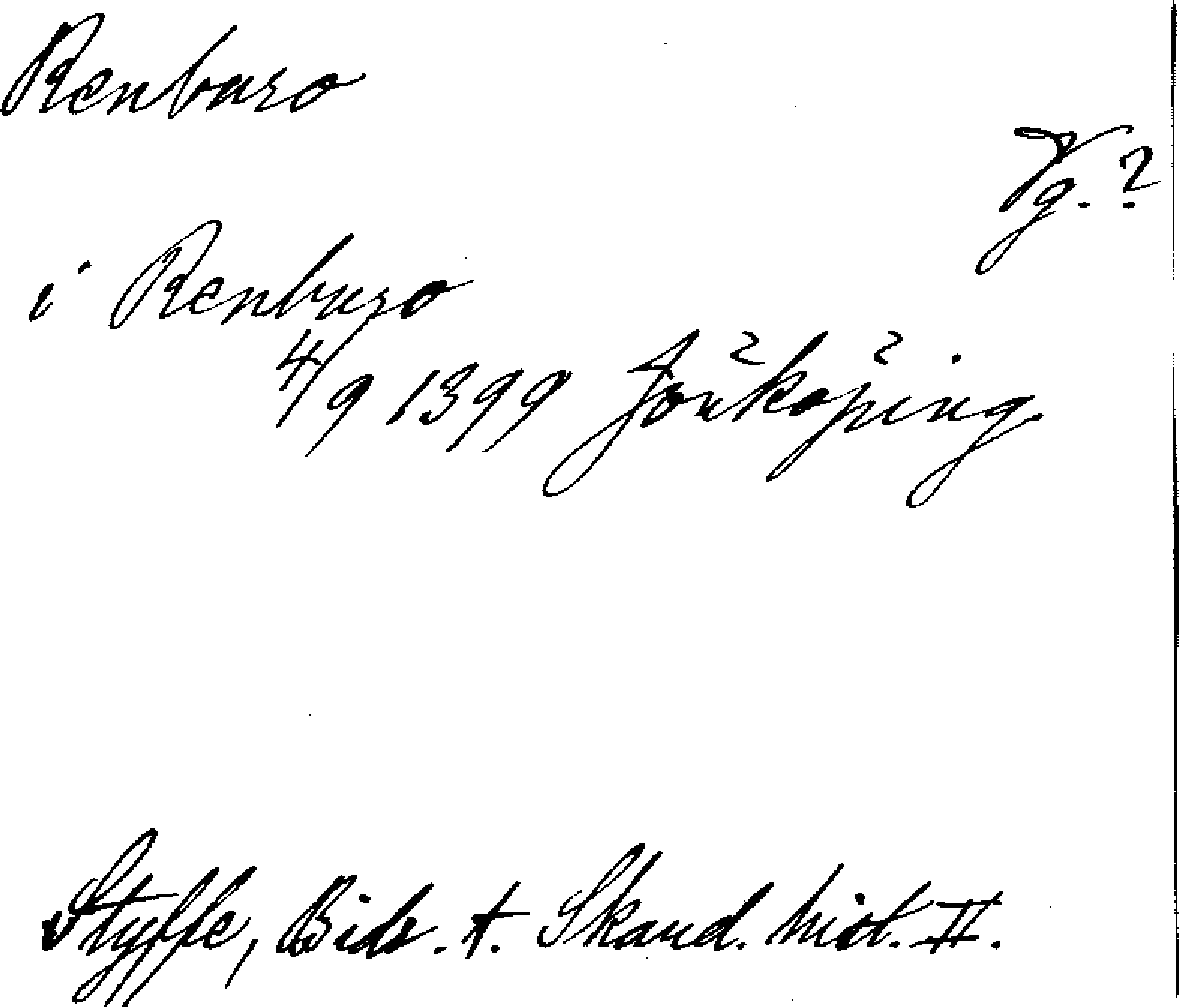 Renbaro
Vg.?
i Renbaro
4/9 1399 Jönköping.
Styffe, Bidr. t. Skand. hist. II.